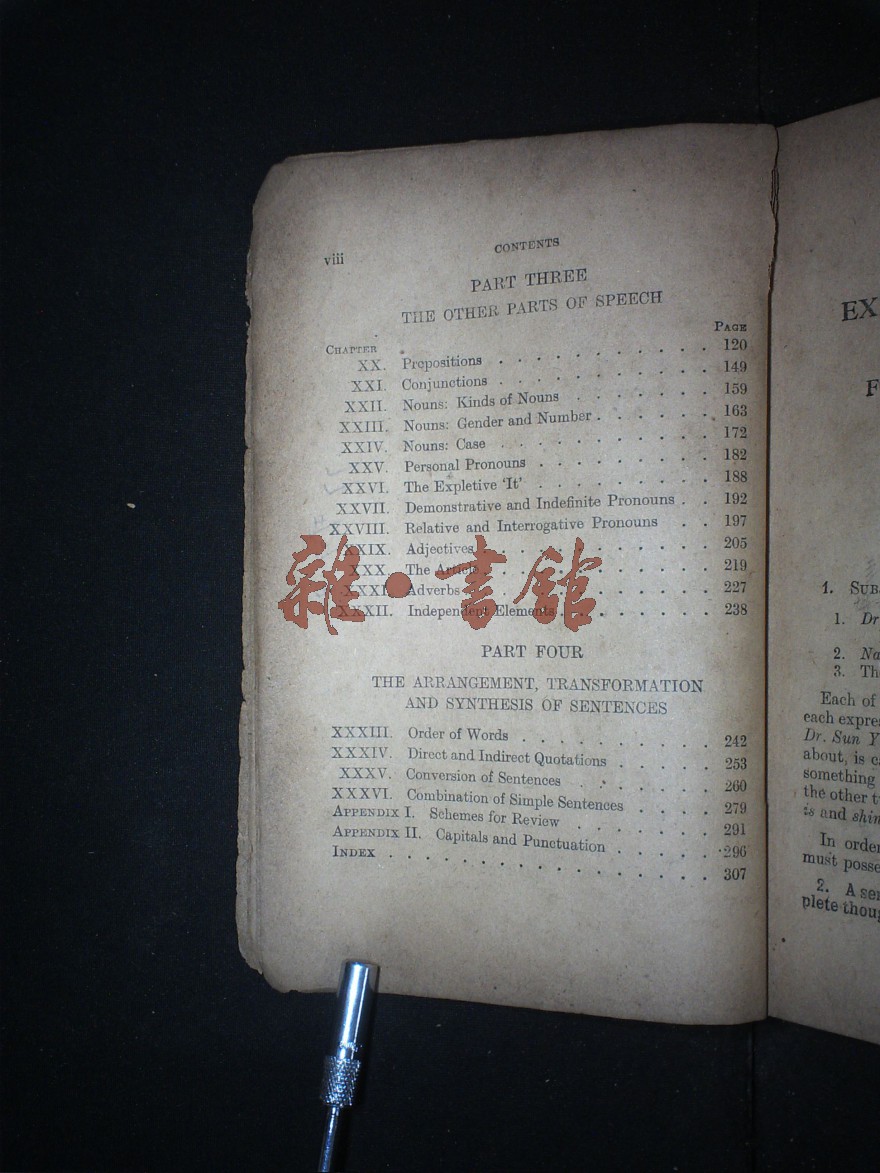 viii
CONTENTS
PART THREE
THE OTHER PARTS OF SPEECH
CHAPTER PAGE
XX. Prepositions . . . . . . . . . . . 120
XXI. Conjunctions . . . . . . . . . . . 149
XXII. Nouns: Kinds of Nouns . . . . . . . 159
XXIII. Nouns: Gender and Number . . . . . . 163
XXIV. Nouns: Case . . . . . . . . . . . 172
XXV. Personal Pronouns . . . . . . . . . 182
XXVI. The Expletive ‘It’ . . . . . . . . . 188
XXVII. Demonstrative and Indefinite Pronouns . . 192
XXVIII. Relative and Interrogative Pronouns . . 197
XXIX. Adjectives . . . . . . . . . . . 205
XXX. The Article . . . . . . . . . . . 219
XXXI. Adverbs . . . . . . . . . . . 227
XXXII. Independent Elements . . . . . . . . 238
雜·書館
PART FOUR
THE ARRANGEMENT, TRANSFORMATION
AND SYNTHESIS OF SENTENCES
XXXIII. Order of Words . . . . . . . . . . 242
XXXIV. Direct and Indirect Quotations . . . . . 253
XXXV. Conversion of Sentences . . . . . . . 260
XXXVI. Combination of Simple Sentences . . . . . 279
APPENDIX I. Schemes for Review . . . . . . . 291
APPENDIX II. Capitals and Punctuation . . . . . 296
INDEX . . . . . . . . . . . . . . 307
EX
F
1. SUB
1. Dr
2. Na
3. Th
Each of
each expre
Dr. Sun Y
about, is c
something
the other t
is and shin
In order
must posse
2. A sen
plete thoug